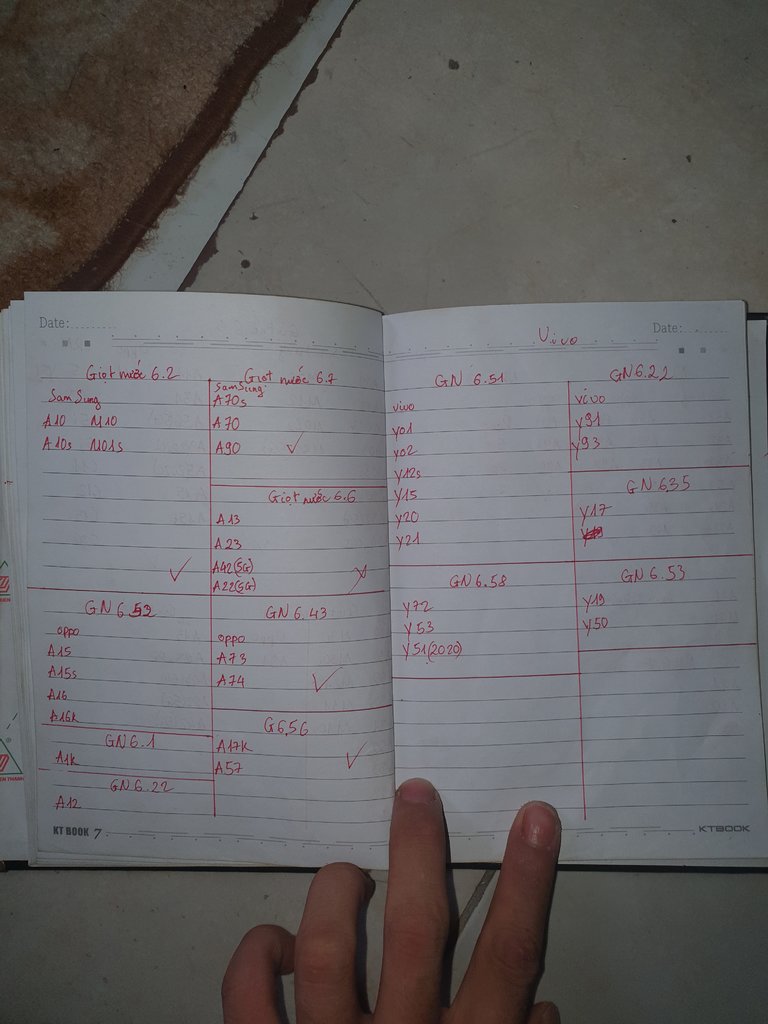 Date:
Giọt nước 6.2
Sam Sung
A10 M10
A10s M01s
Giọt nước 6.7
Sam Sung
A70s
A70
A90
Giọt nước 6.6
A13
A23
A42(5G)
A22(5G)
GN 6.52
oppo
A15
A15s
A16
A16k
GN 6.1
A1k
GN 6.22
A12
GN 6.43
oppo
A73
A74
G6,56
A17K
A57
KT BOOK 7
Vivo
Date:
GN 6.51
vivo
y01
y02
y12s
y15
y20
y21
GN 6.22
vivo
y91
y93
GN 6.35
y17
GN 6.58
y72
y53
y51(2020)
GN 6.53
y19
y50
KTBOOK